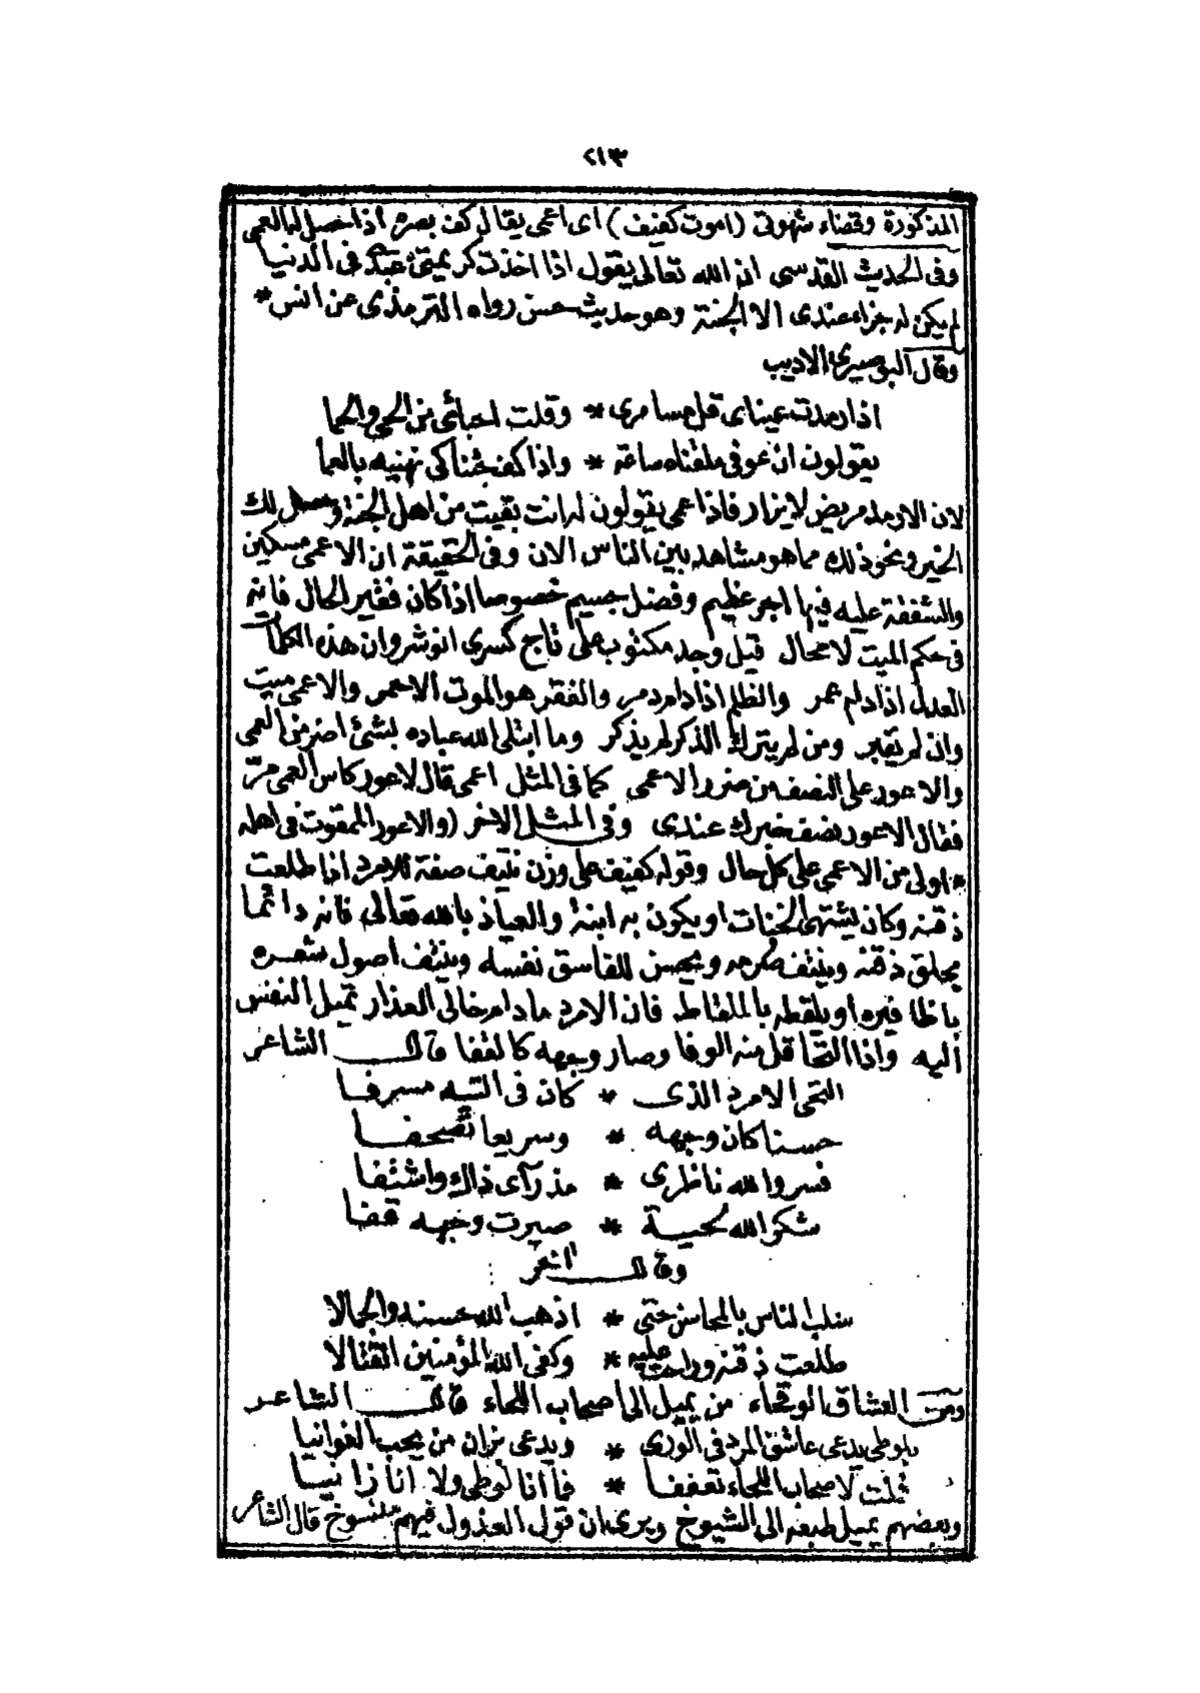 ٢١٣
المذكورة وقضاء شهوتى (اموت كفيف) اى اعمى يقال كف بصره اذا حصل له العمى
وفى الحديث القدسى ان الله تعالى يقول اذا اخذت كريمتى عبدى فى الدنيا
لم يكن له جزاء عندى الا الجنة وهو حديث حسن رواه الترمذى عن انس *
وقال البوصيرى الاديب
اذا رمدت عيناى قل مسامرى * وقلت احبائى من الحى والحما
يقولون ان عوفى ملقناه ساعة * واذا كف جئناكى نهنيه بالعما
لان الارمد مريض لا يزار فاذا عمى يقولون له انت بقيت من اهل الجنة وحصل لك
الخير ونحو ذلك مما هو مشاهد بين الناس الان وفى الحقيقة ان الاعمى مسكين
والشفقة عليه فيها اجر عظيم وفضل جسيم خصوصا اذا كان فقير الحال فانه
فى حكم الميت لا محال قيل وجد مكتوب على تاج كسرى انوشروان هذه الكلمات
العدل اذا دام عمر والظلم اذا دام دمر والفقر هو الموت الاحمر والاعمى ميت
وان لم يقبر ومن لم يترك الذكر لم يذكر وما ابتلى الله عباده بشئ اضر من العمى
والاعور على النصف من ضرر الاعمى كما فى المثل اعمى قال لاعور كاس العمى مرّ
فقال الاعور نصف خبرك عندى وفى المثل الاخر (والاعور الممقوت فى اهله
* اولى من الاعمى على كل حال وقوله كفيف على وزن نتيف صفة للامرد اذا طلعت
ذقنه وكان يشتهى الخناث او يكون به ابنة والعياذ بالله تعالى فانه دائما
يحلق ذقنه وينتف خرجه ويحسن للفاسق نفسه وينتف اصول شعره
باظافيره او يلقطه بالملقاط فان الامرد ما دام خالى العذار تميل النفس
اليه واذا التحا قل منه الوفا وصار وجهه كالقفا قال الشاعر
التحى الامرد الذى * كان فى التيه مسرفا
حسنا كان وجهه * وسريعا تصحفا
فسر والله ناظرى * مذ رآى ذاك واشتفا
شكر الله لحية * صيرت وجهه قفا
وقال اخر
سلب الناس بالمحاسن حتى * اذهب الله حسنه والجمالا
طلعت ذقنه وراحت عليه * وكفى الله المؤمنين القتالا
ومن العشاق الوقحاء من يميل الى اصحاب اللحاء قال الشاعر
بلوطى يدعى عاشق المرد فى الورى * ويدعى بزان من يحب الغوانيا
فملت لاصحاب اللحاء تعففا * فما انا لوطى ولا انا زانيا
وبعضهم يميل طبعه الى الشيوخ ويرى ان قول العذول فيهم منسوخ قال الشاعر